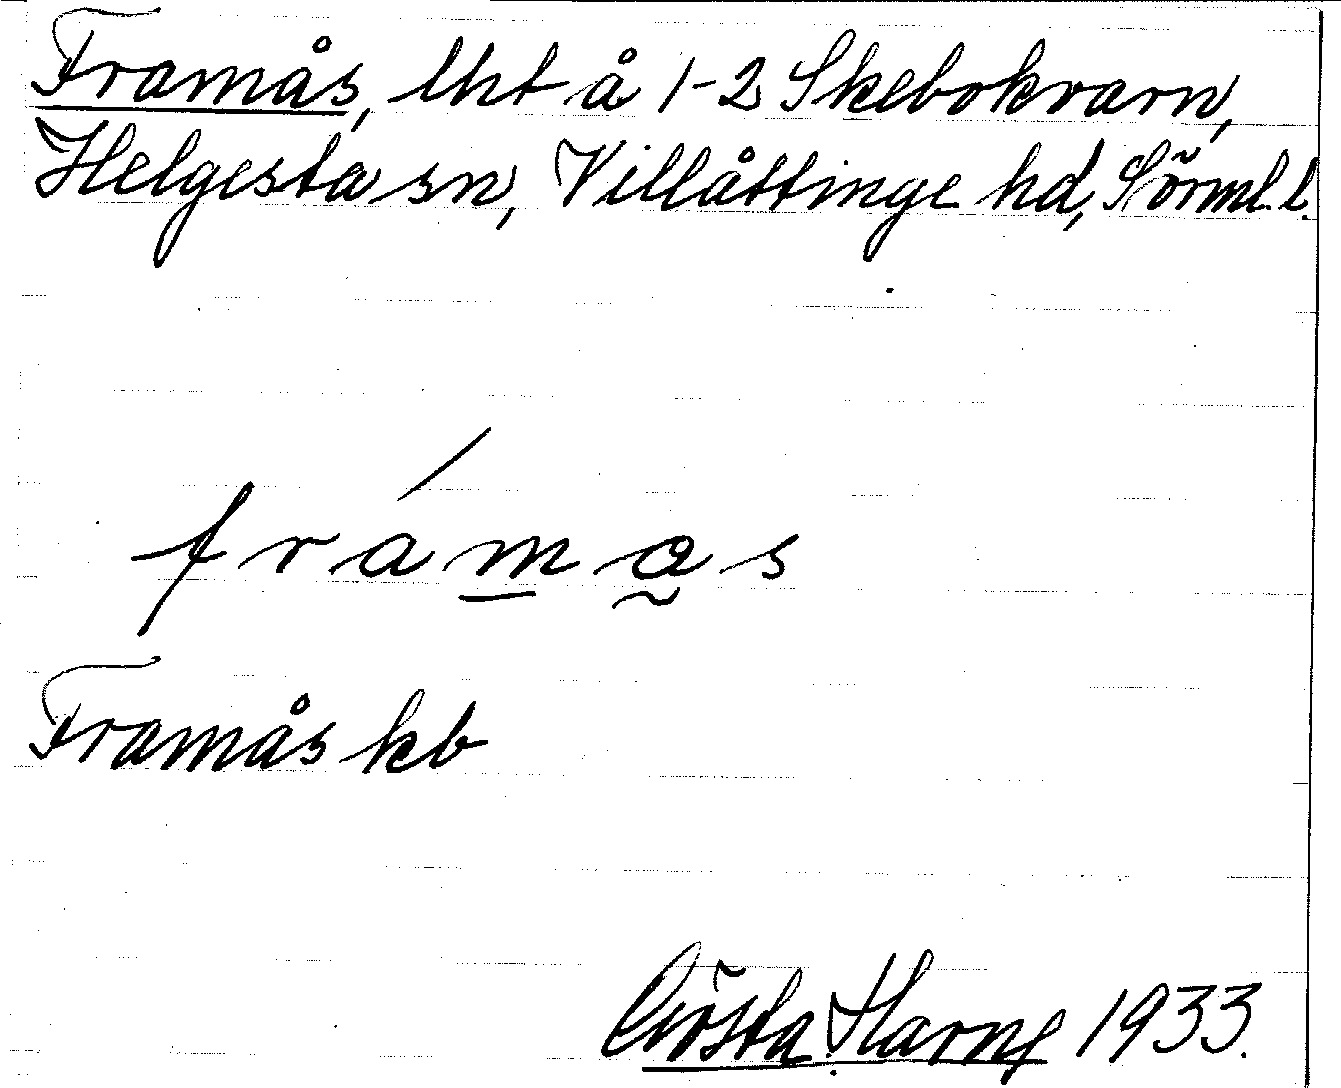 Framås, lht å 1-2 Skebokvarn,
Helgesta sn, Villåttinge hd, Sörml. l.
frámås
Framås kb
Gösta Harng 1933.